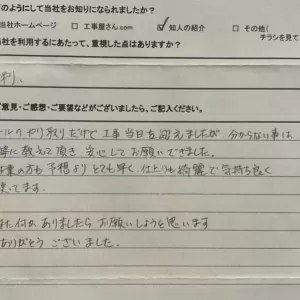 のようにして当社をお知りになられましたか？
当社ホームページ □ 工事屋さん.com ☑ 知人の紹介 □ その他（
チラシを見て
当社を利用するにあたって、重視した点はありますか？
判。
意見・ご感想・ご要望などがございましたら、ご記入ください。
ールのやり取りだけで工事当日を迎えましたが 分からない事は
寧に教えて頂き 安心してお願いできました。
業の方も 予想より とても早く 仕上りも綺麗で 気持ち良く
ってます。
また何か ありましたら お願いしようと思います
ありがとう ございました。